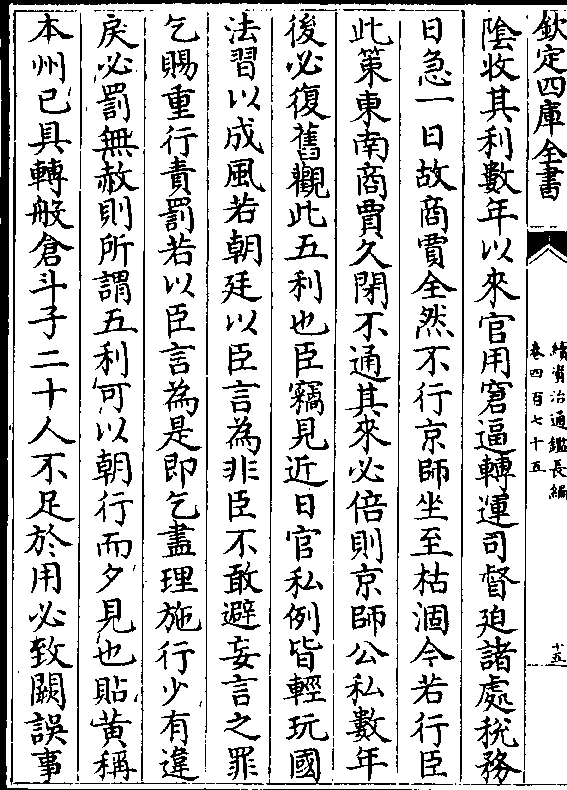 欽定四庫全書
續資治通鑑長編
卷四百七十五
十五
陰收其利數年以來官用窘逼轉運司督廹諸處稅務
日急一日故商賈全然不行京師坐至枯涸今若行臣
此策東南商賈久閉不通其來必倍則京師公私數年
後必復舊觀此五利也臣竊見近日官私例皆輕玩國
法習以成風若朝廷以臣言為非臣不敢避妄言之罪
乞賜重行責罰若以臣言為是即乞盡理施行少有違
戾必罰無赦則所謂五利可以朝行而夕見也貼黄稱
本州已具轉般倉斗子二十人不足於用必致闕誤事